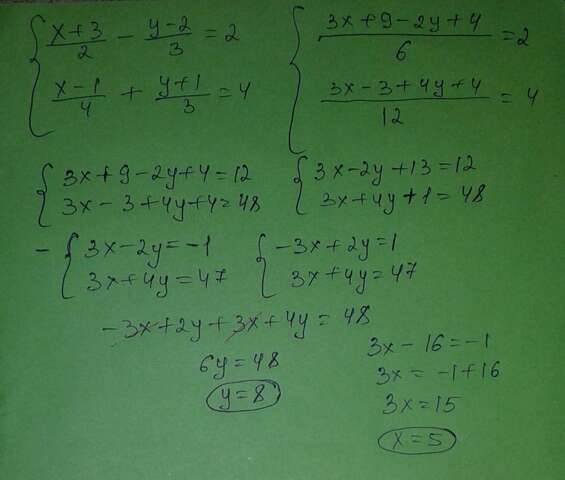 { (x+3)/2 - (y-2)/3 = 2
(x-1)/4 + (y+1)/3 = 4
{ (3x+9-2y+4)/6 = 2
(3x-3+4y+4)/12 = 4
{ 3x+9-2y+4=12
3x-3+4y+4=48
{ 3x-2y+13=12
3x+4y+1=48
- { 3x-2y=-1
3x+4y=47
{ -3x+2y=1
3x+4y=47
-3x+2y+3x+4y=48
6y=48
y=8
3x-16=-1
3x=-1+16
3x=15
x=5